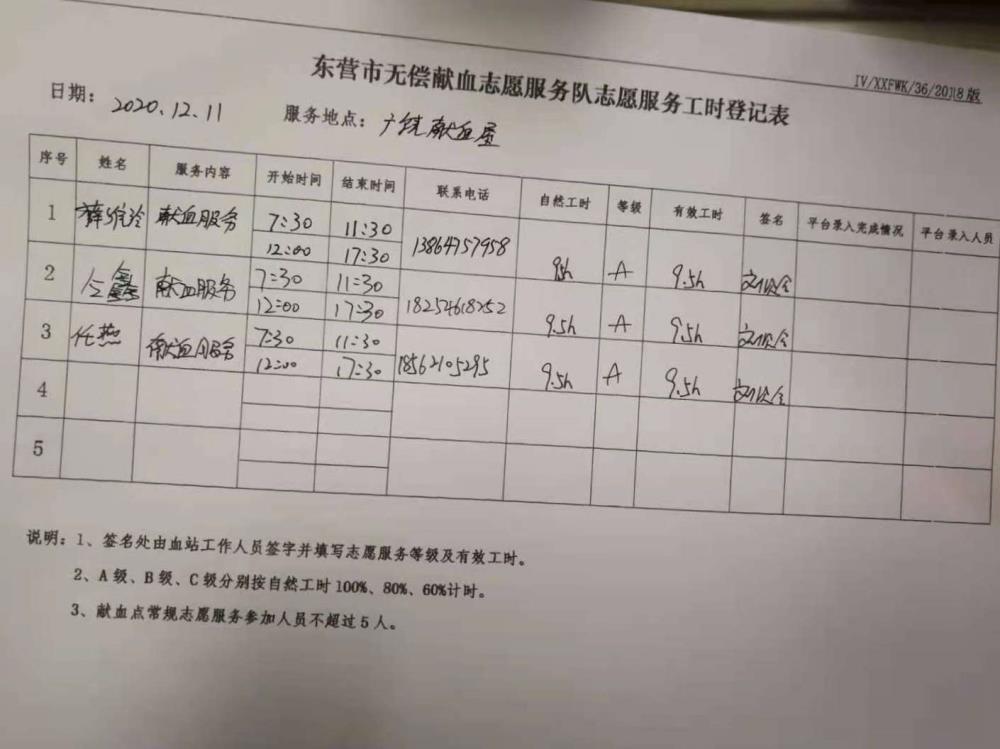 IV/XXFWK/36/2018版
东营市无偿献血志愿服务队志愿服务工时登记表
日期: 2020.12.11 服务地点: 广饶献血屋
序号 姓名 服务内容 开始时间 结束时间 联系电话 自然工时 等级 有效工时 签名 平台录入完成情况 平台录入人员
1 献血服务 7:30 11:30 13864757958 A 9.5h
12:00 17:30
2 鑫 献血服务 7:30 11:30 9.5h A 9.5h
12:00 17:30
3 任燕 献血服务 7:30 11:30 18562105295 9.5h A 9.5h
12:00 17:30
4
5
说明: 1、签名处由血站工作人员签字并填写志愿服务等级及有效工时。
2、A级、B级、C级分别按自然工时100%、80%、60%计时。
3、献血点常规志愿服务参加人员不超过5人。